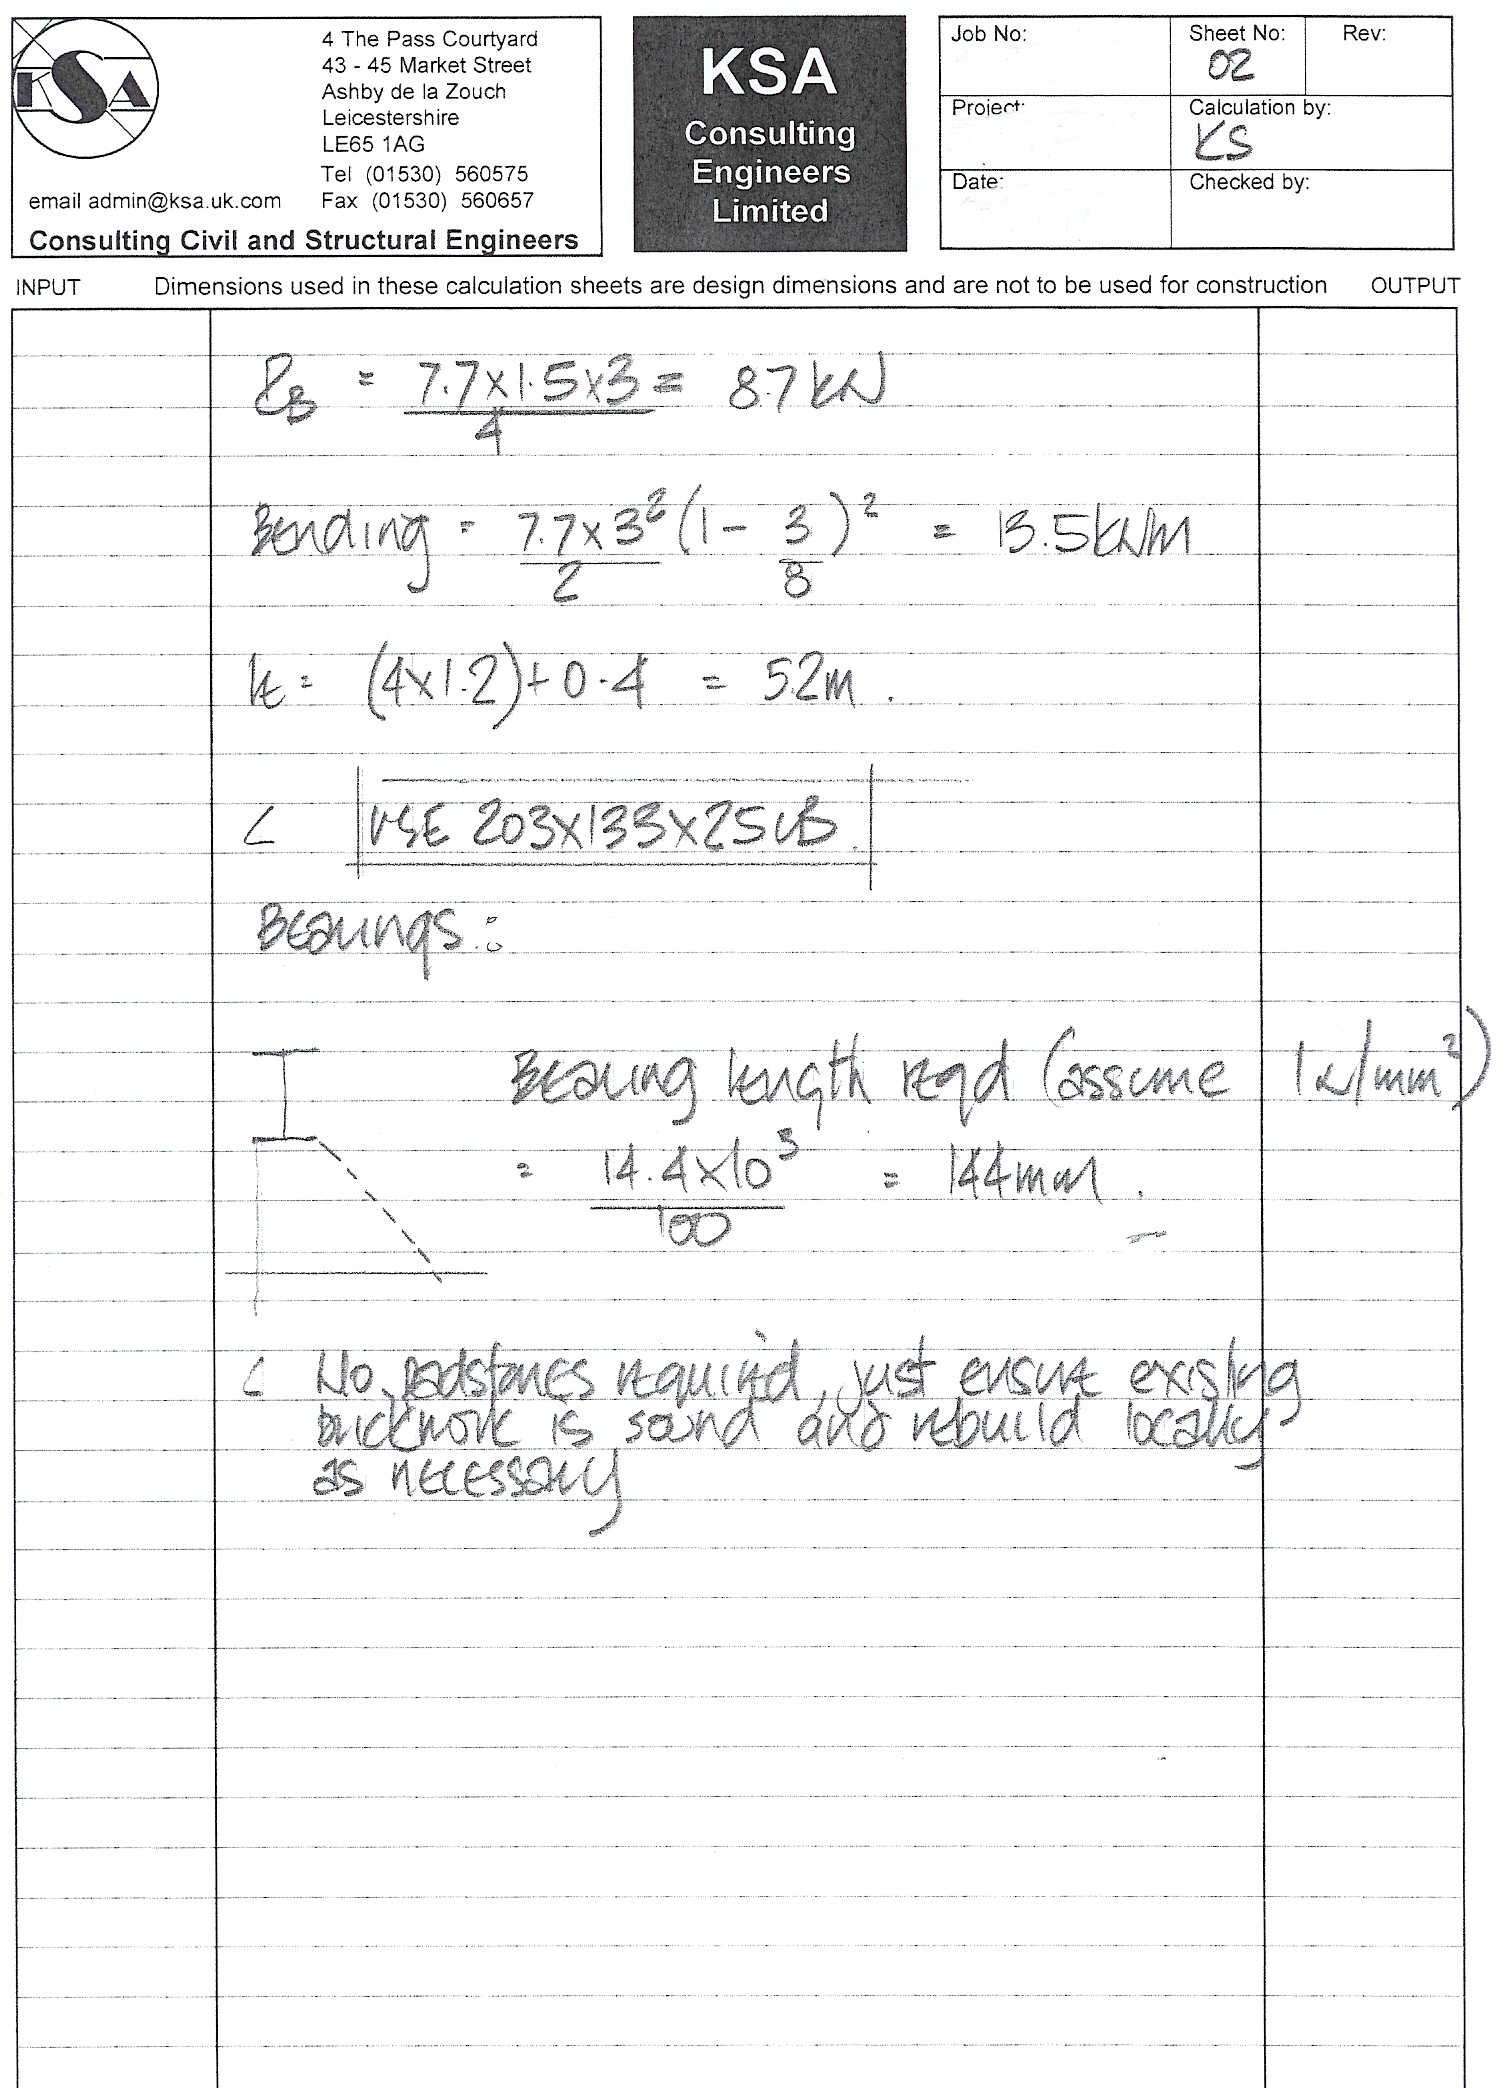 KSA
4 The Pass Courtyard
43 - 45 Market Street
Ashby de la Zouch
Leicestershire
LE65 1AG
Tel (01530) 560575
email admin@ksa.uk.com Fax (01530) 560657
Consulting Civil and Structural Engineers
KSA
Consulting
Engineers
Limited
Job No:
Sheet No:
02
Rev:
Project:
Calculation by:
KS
Date:
Checked by:
INPUT Dimensions used in these calculation sheets are design dimensions and are not to be used for construction OUTPUT
RB = 7.7x1.5x3 = 8.7kN
4
Bending = 7.7x3² (1 - 3)² = 13.5kNm
2 8
le = (4x1.2)+0.4 = 5.2m.
USE 203x133x25UB.
Bearings:
Bearing length reqd (assume 1N/mm²)
= 14.4x10³ = 144mm.
100
No padstones required, just ensure existing
brickwork is sound and rebuild locally
as necessary